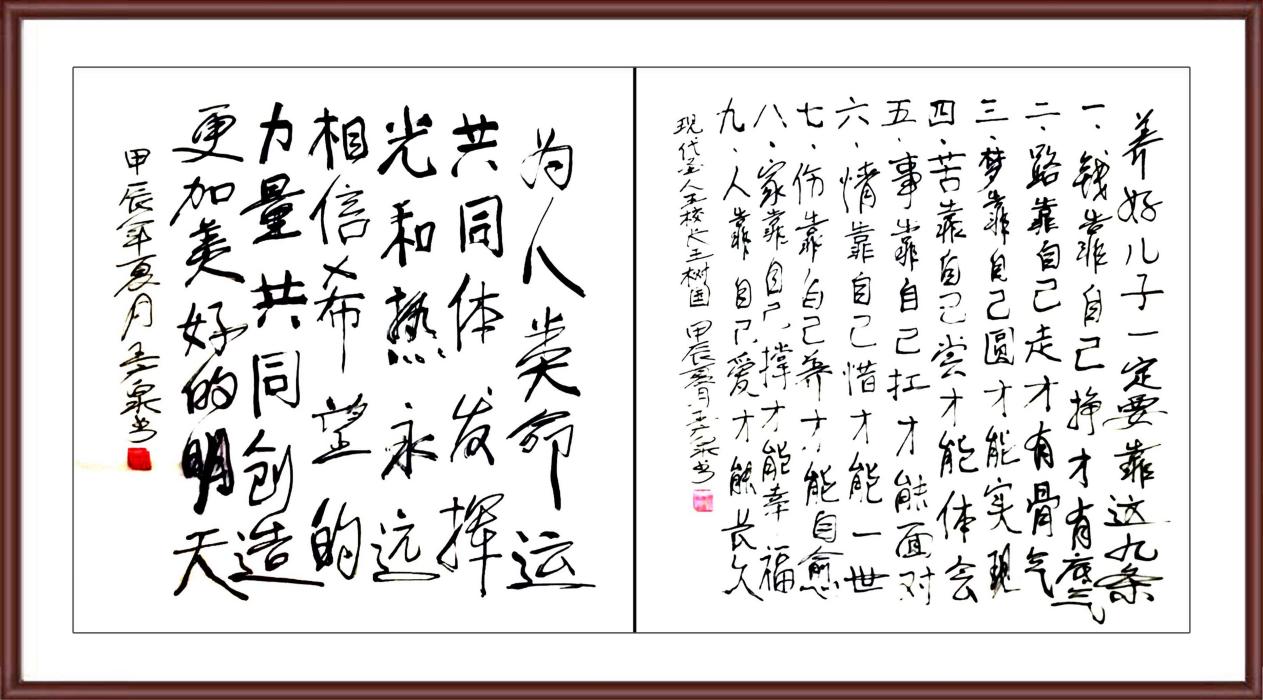 养好儿子一定要靠这九条
一、钱靠自己挣才有底气
二、路靠自己走才有骨气
三、梦靠自己圆才能实现
四、苦靠自己尝才能体会
五、事靠自己扛才能面对
六、情靠自己惜才能一世
七、伤靠自己养才能自愈
八、家靠自己撑才能幸福
九、人靠自己爱才能长久
现代圣人王校长王树国 甲辰夏月 泉书
为人类命运
共同体发挥
光和热永远
相信希望的
力量共同创造
更加美好的明天
甲辰年夏月 泉书